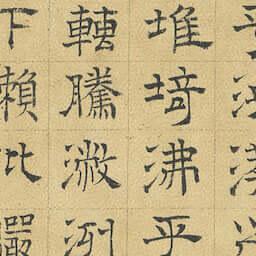 堆埼沸乎
轉騰潎洌
下瀨批巖